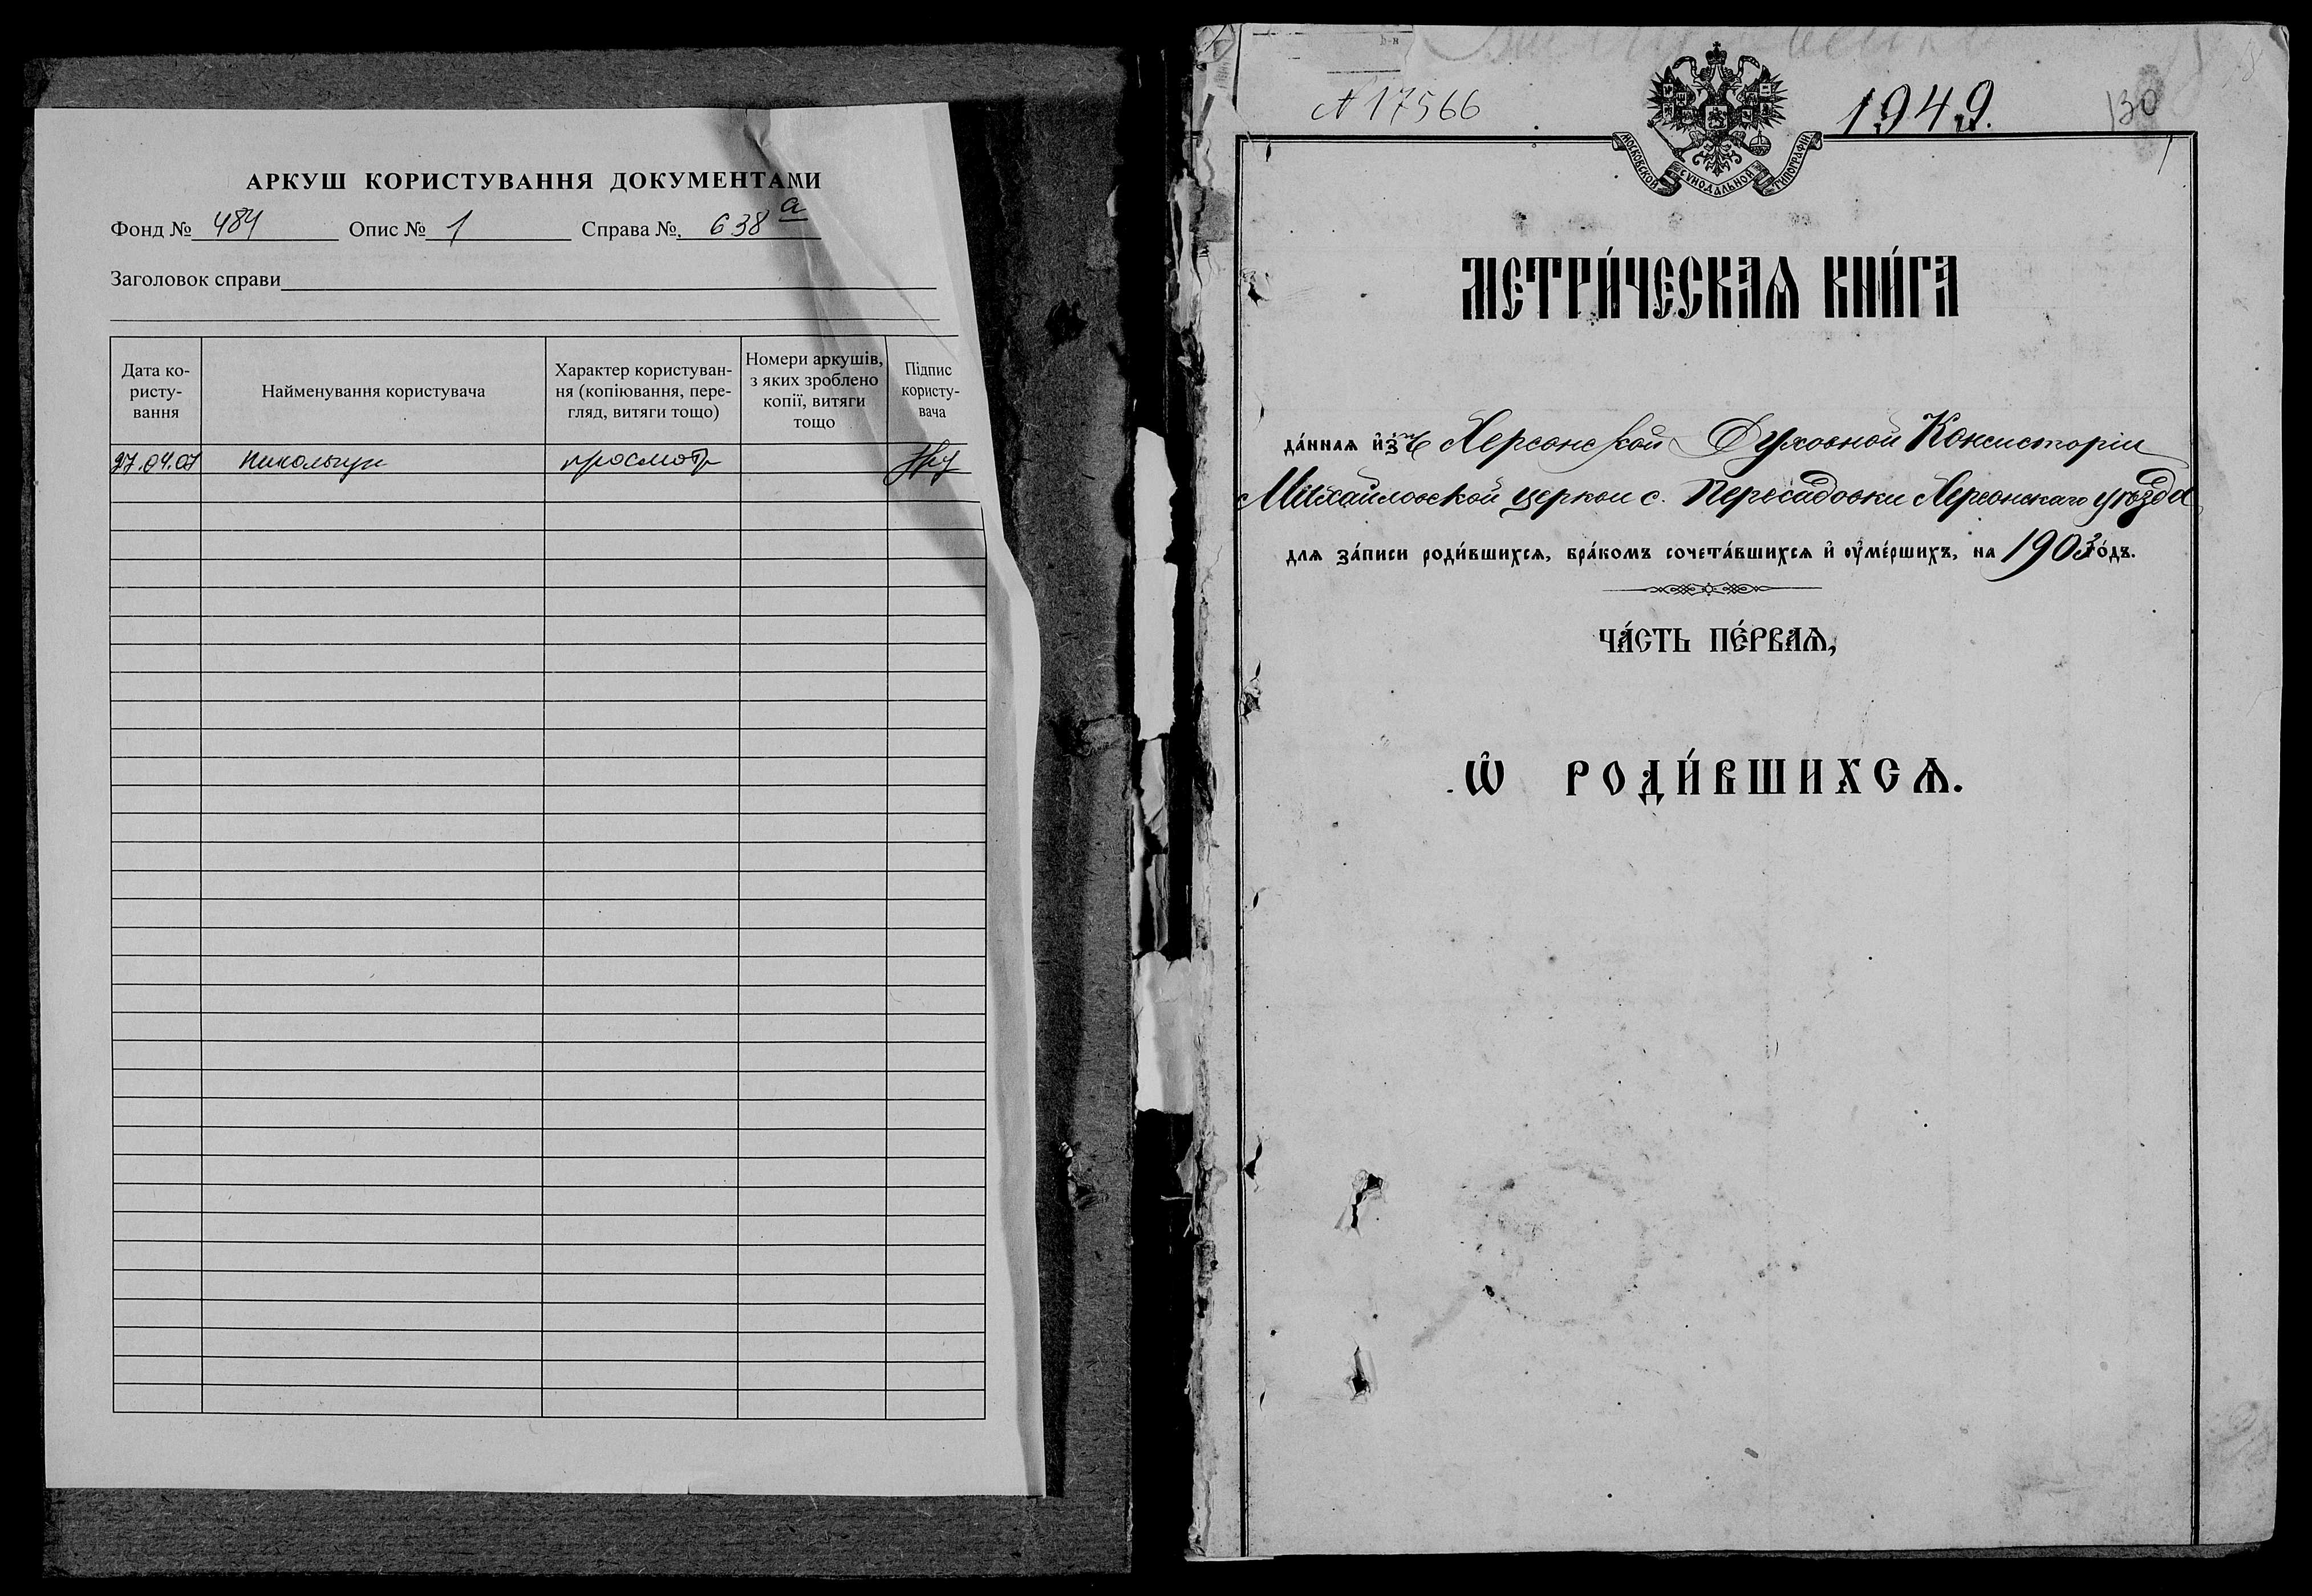 АРКУШ КОРИСТУВАННЯ ДОКУМЕНТАМИ
Фонд № 484 Опис № 1 Справа № 638 а
Заголовок справи
Дата ко-
ристу-
вання
Найменування користувача
Характер користуван-
ня (копіювання, пере-
гляд, витяги тощо)
Номери аркушів,
з яких зроблено
копії, витяги
тощо
Підпис
користу-
вача
27.04.07 просмотр
N 17566
1949.
130
МОСКОВСКОЙ СѴНОДАЛЬНОЙ ТИПОГРАФІИ
МЕТРИ́ЧЕСКАѦ КНИ́ГА
да́ннаѧ и҆зъ Херсонской Духовной Консисторіи
Михайловской церкви с. Пересадовки Херсонскаго уѣзда
длѧ за́писи роди́вшихсѧ, бра́комъ сочета́вшихсѧ и҆ ѹ҆ме́ршихъ, на 1903 го́дъ.
ЧА́СТЬ ПЕ́РВАѦ,
Ѡ҆ РОДИ́ВШИХСѦ.